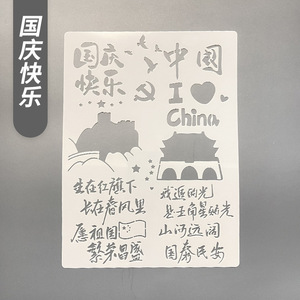 国庆快乐
国庆
快乐
中国
I
China
生在红旗下
长在春风里
愿祖国
繁荣昌盛
我追的光
是五角星的光
山河远阔
国泰民安